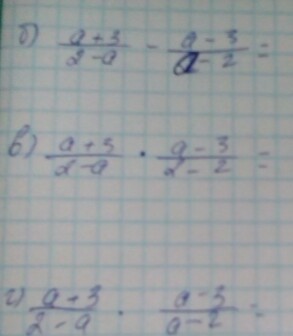 б) (a+3)/(2-a) - (a-3)/(a-2) =
в) (a+3)/(2-a) · (a-3)/(2-2) =
г) (a+3)/(2-a) · (a-3)/(a-2) =